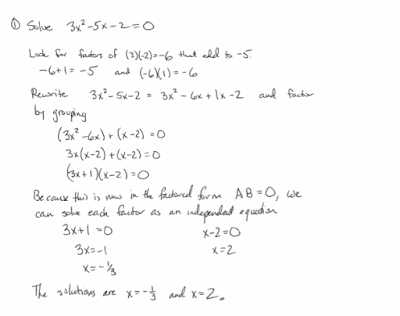 ① Solve 3x²-5x-2=0
Look for factors of (3)(-2)=-6 that add to -5.
-6+1=-5 and (-6)(1)=-6
Rewrite 3x²-5x-2 = 3x²-6x+1x-2 and factor
by grouping
(3x²-6x)+(x-2)=0
3x(x-2)+(x-2)=0
(3x+1)(x-2)=0
Because this is now in the factored form AB=0, we
can solve each factor as an independent equation
3x+1=0 x-2=0
3x=-1 x=2
x=-1/3
The solutions are x=-1/3 and x=2.